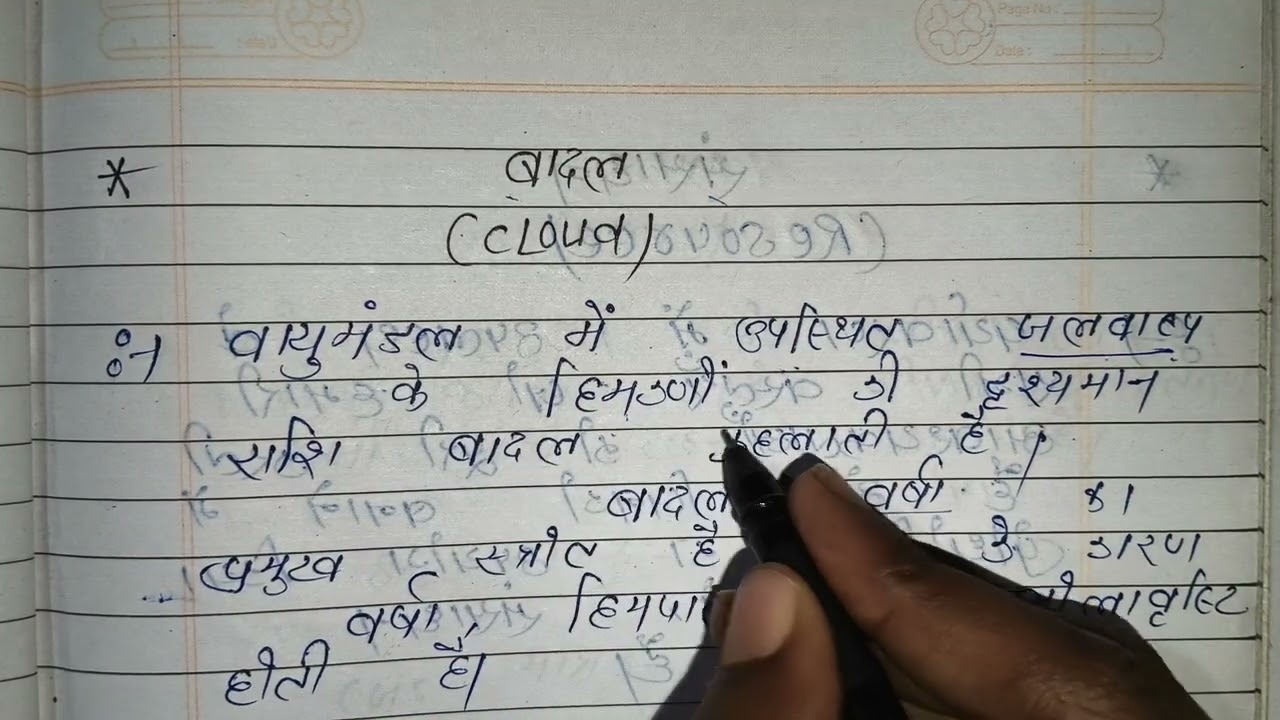 Page No.:
Date:
* बादल
(CLOUD)
वायुमंडल में उपस्थित जलवाष्प
के हिमकणों की दृश्यमान
राशि बादल कहलाती है।
बादल वर्षा का
प्रमुख स्त्रोत है के कारण
वर्षा, हिमपा
होती है।